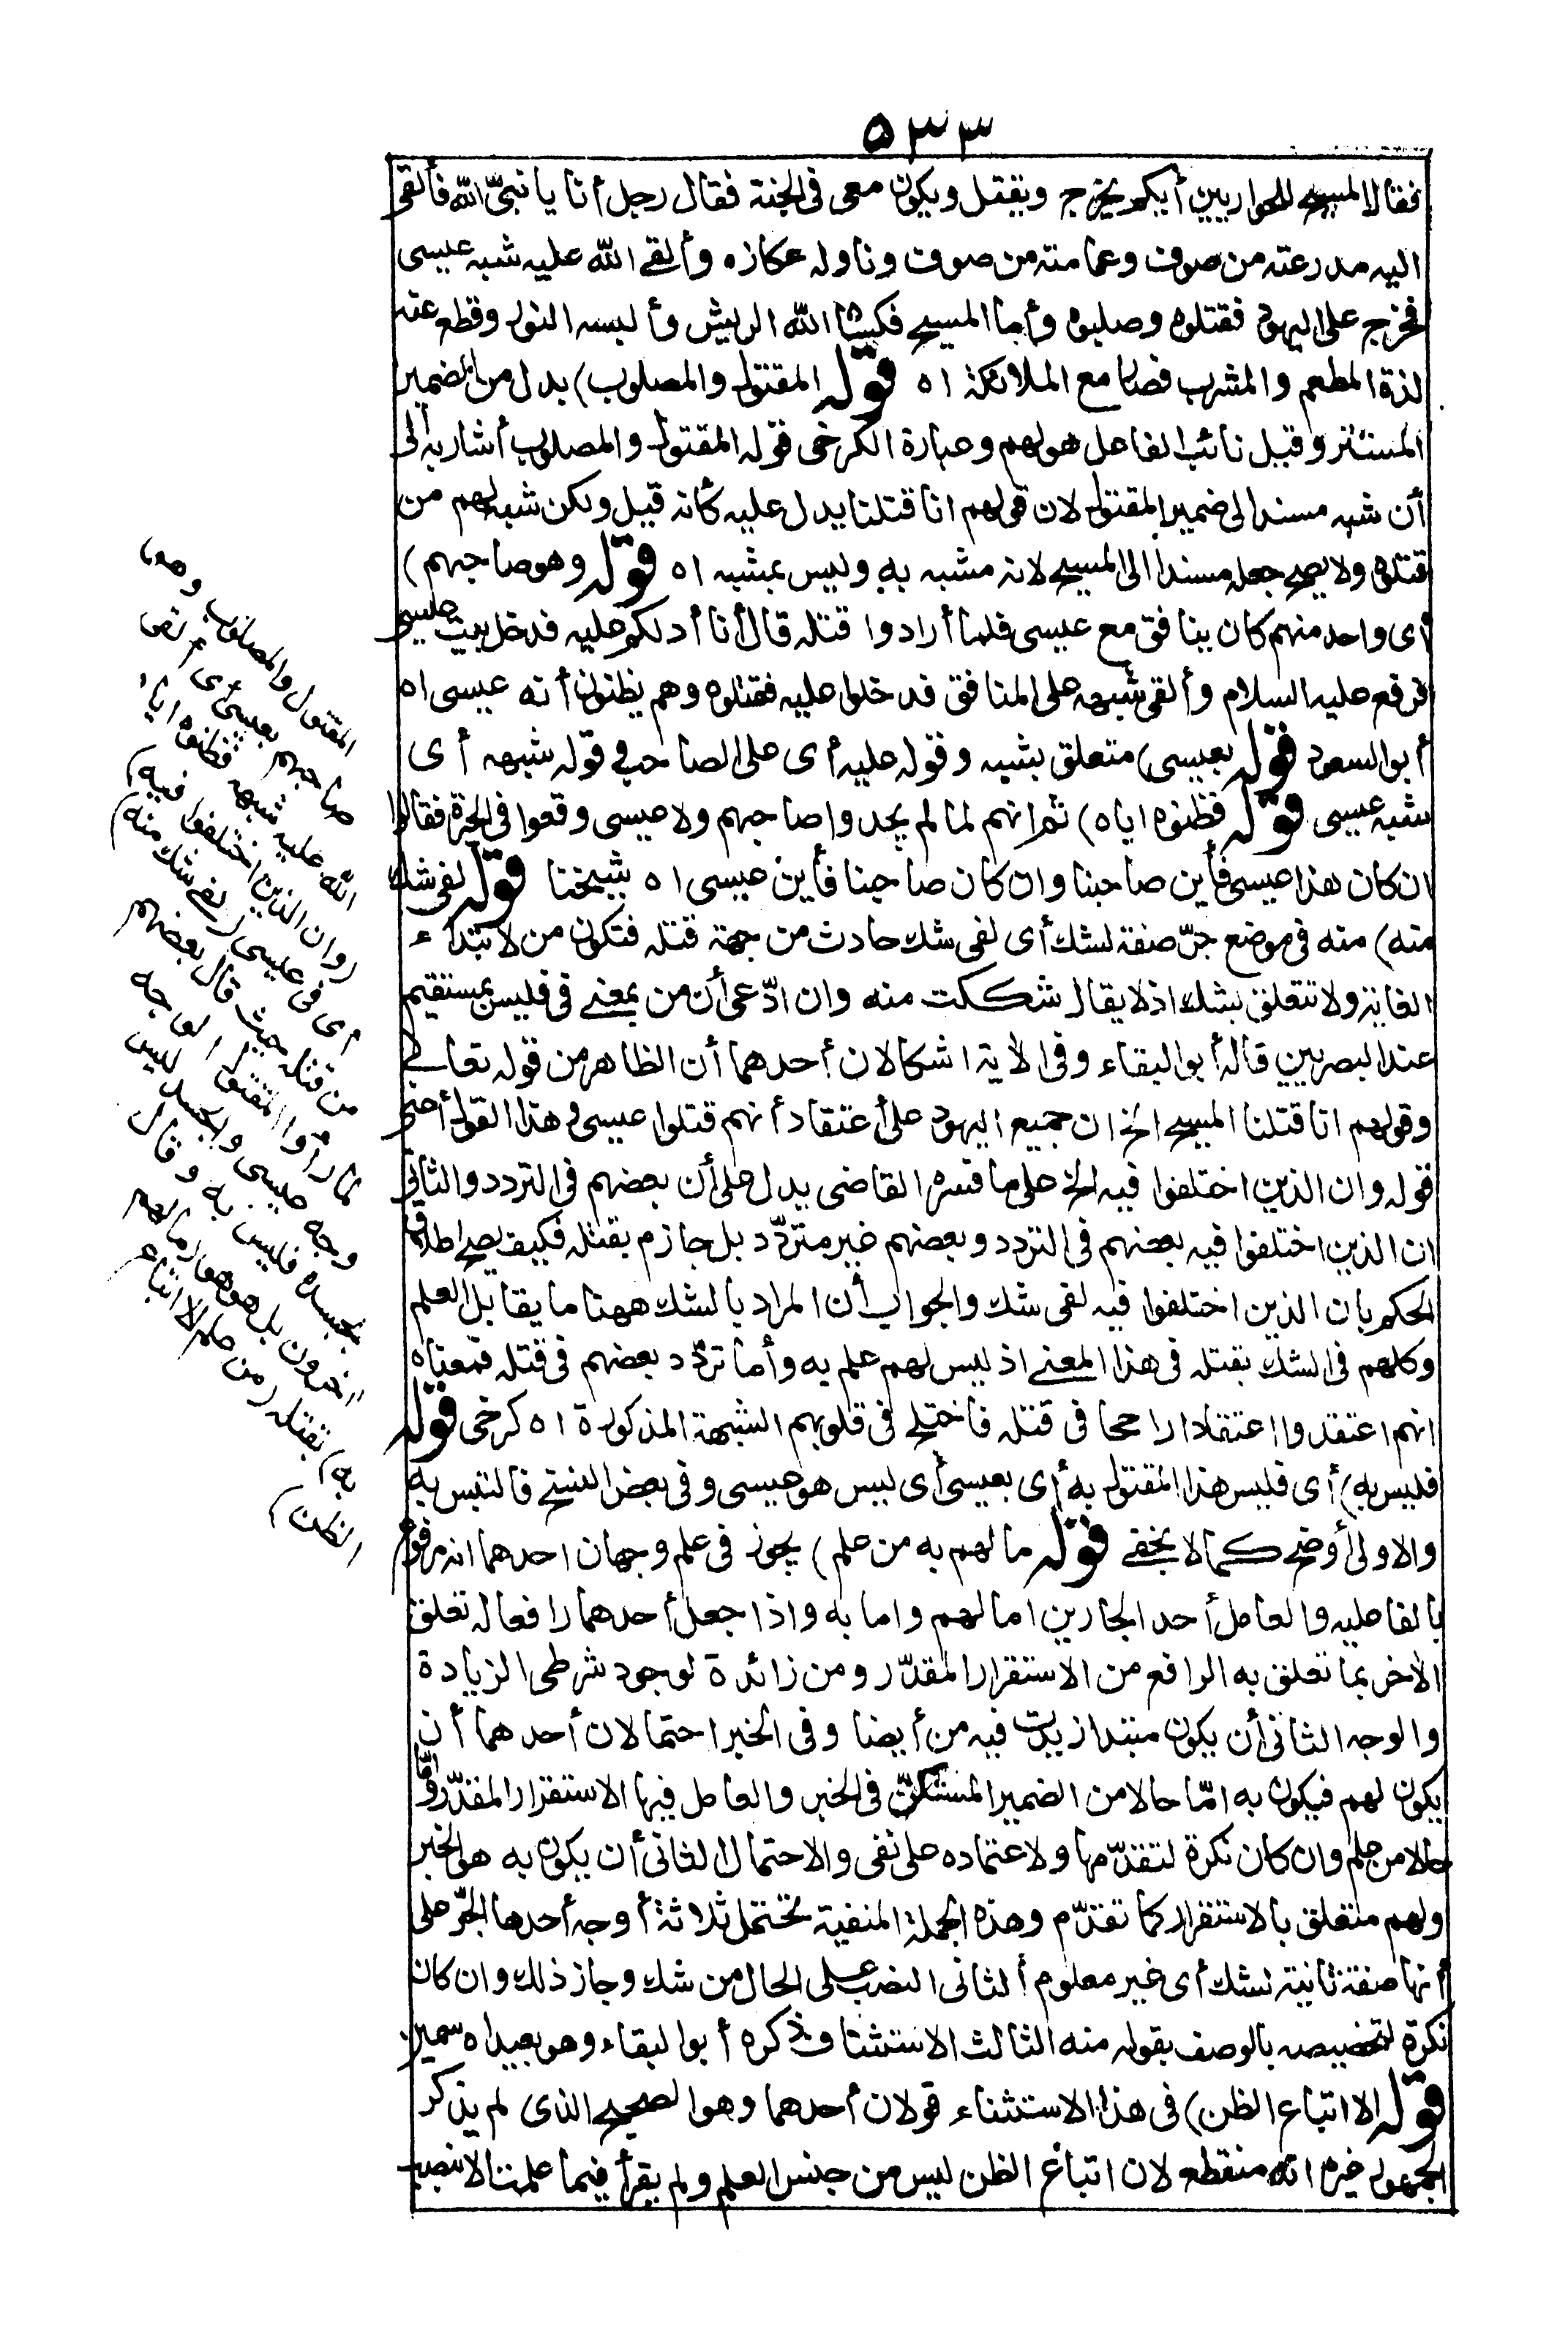 ٥٣٣
فقال المسيح للحواريين أيكم يخرج ويقتل ويكون معى فى الجنة فقال رجل أنا يا نبىّ الله فألقى
اليه مدرعته من صوف وعمامته من صوف وناوله عكازه وألقى الله عليه شبه عيسى
فخرج على اليهود فقتلوه وصلبوه وأما المسيح فكساه الله الريش وألبسه النور وقطع عنه
لذة المطعم والمشرب فصار مع الملائكة اه قوله المقتول والمصلوب) بدل من الضمير
المستتر وقيل نائب الفاعل هو لهم وعبارة الكرخى قوله المقتول والمصلوب أشار به الى
أن شبه مسند الى ضمير المقتول لان قولهم انا قتلنا يدل عليه كأنه قيل ولكن شبه لهم من
قتلوه ولا يصح جعله مسندا الى المسيح لانه مشبه به وليس بمشبه اه قوله وهو صاحبهم)
أى واحد منهم كان ينافق مع عيسى فلما أرادوا قتله قال أنا أدلكم عليه فدخل بيت عيسى
فرفع عليه السلام وألقى شبهه على المنافق فدخلوا عليه فقتلوه وهم يظنون أنه عيسى اه
أبو السعود قوله بعيسى) متعلق بشبه وقوله عليه أى على الصاحب فى قوله شبهه أى
شبه عيسى قوله فظنوه اياه) ثم انهم لما لم يجدوا صاحبهم ولا عيسى وقعوا فى الحيرة فقالوا
ان كان هذا عيسى فأين صاحبنا وان كان صاحبنا فأين عيسى اه شيخنا قوله لفى شك
منه) منه فى موضع جرّ صفة لشك أى لفى شك حادث من جهة قتله فتكون من لابتداء
الغاية ولا تتعلق بشك اذ لا يقال شككت منه وان ادّعى أن من بمعنى فى فليس بمستقيم
عند البصريين قاله أبو البقاء وفى الآية اشكالان أحدهما أن الظاهر من قوله تعالى
وقولهم انا قتلنا المسيح الخ ان جميع اليهود على أعتقاد أنهم قتلوا عيسى وهذا القول أعنى
قوله وان الذين اختلفوا فيه الخ على ما فسره القاضى يدل على أن بعضهم فى التردد والثانى
ان الذين اختلفوا فيه بعضهم فى التردد وبعضهم غير متردّد بل جازم بقتله فكيف يصح اطلاق
الحكم بان الذين اختلفوا فيه لفى شك والجواب أن المراد بالشك ههنا ما يقابل العلم
وكلهم فى الشك بقتله فى هذا المعنى اذ ليس لهم علم به وأما تردّد بعضهم فى قتله فمعناه
انهم اعتقدوا اعتقادا راجحا فى قتله فاختلج فى قلوبهم الشبهة المذكورة اه كرخى قوله
فليس به) أى فليس هذا المقتول به أى بعيسى أى ليس هو عيسى وفى بعض النسخ فالتبس به
والاولى أوضح كما لا يخفى قوله ما لهم به من علم) يجوز فى علم وجهان احدهما انه مرفوع
بالفاعليه والعامل أحد الجارين اما لهم واما به واذا جعل أحدهما رافعا له تعلق
الآخر بما تعلق به الرافع من الاستقرار المقدّر ومن زائدة لوجود شرطى الزيادة
والوجه الثانى أن يكون مبتدا زيدت فيه من أيضا وفى الخبر احتمالان أحدهما أن
يكون لهم فيكون به امّا حالا من الضمير المستكنّ فى الخبر والعامل فيها الاستقرار المقدّر وامّا
حالا من علم وان كان نكرة لتقدّمها ولاعتماده على نفى والاحتمال الثانى أن يكون به هو الخبر
ولهم متعلق بالاستقرار كما تقدّم وهذه الجملة المنفية تحتمل ثلاثة أوجه أحدها الجرّ على
أنها صفة ثانية لشك أى غير معلوم ألثانى النصب على الحال من شك وجاز ذلك وان كان
نكرة لتخصيصه بالوصف بقوله منه الثالث الاستئناف ذكره أبو البقاء وهو بعيد اه سمين
قوله الا اتباع الظن) فى هذا الاستثناء قولان أحدهما وهو الصحيح الذى لم يذكر
الجمهور غيره انه منقطع لان اتباع الظن ليس من جنس العلم ولم يقرأ فيما علمنا الا بنصب
المقتول والمصلوب وهو
صاحبهم بعيسى أى ألقى
الله عليه شبهه فظنوه اياه
(وان الذين اختلفوا فيه)
أى فى عيسى (لفى شك منه)
من قتله حيث قال بعضهم
لما رأوا المقتول الوجه
وجه عيسى والجسد ليس
بجسده فليس به وقال
آخرون بل هو هو (ما لهم
به) بقتله (من علم الا اتباع
الظن)